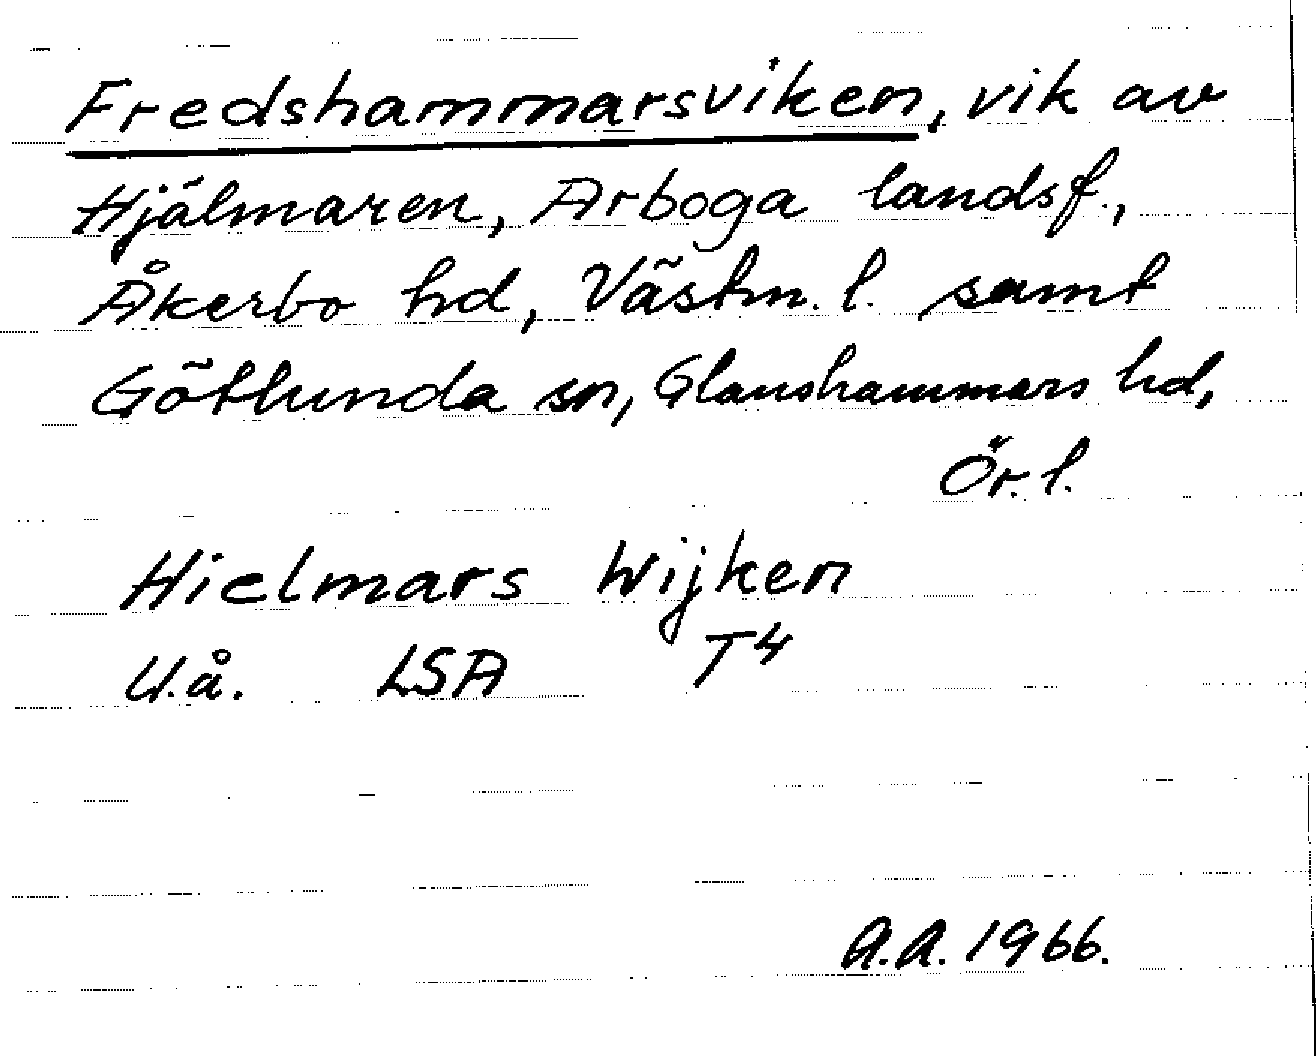 Fredshammarsviken, vik av
Hjälmaren, Arboga landsf.,
Åkerbo hd, Västm. l. samt
Götlunda sn, Glanshammars hd,
Ör. l.
Hielmars Wijken
U.å. LSA T4
A.A. 1966.